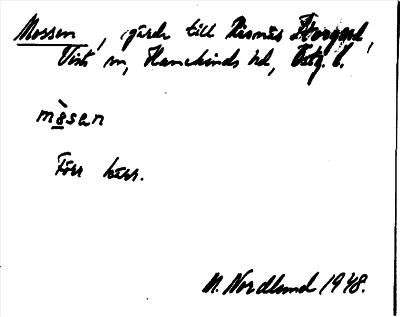 Mossen, gärde till Kisnäs Storgård,
Tirs sn, Hanekinds hd, Östg. l.
mòsen
Förr kärr.
N. Nordlund 1948.